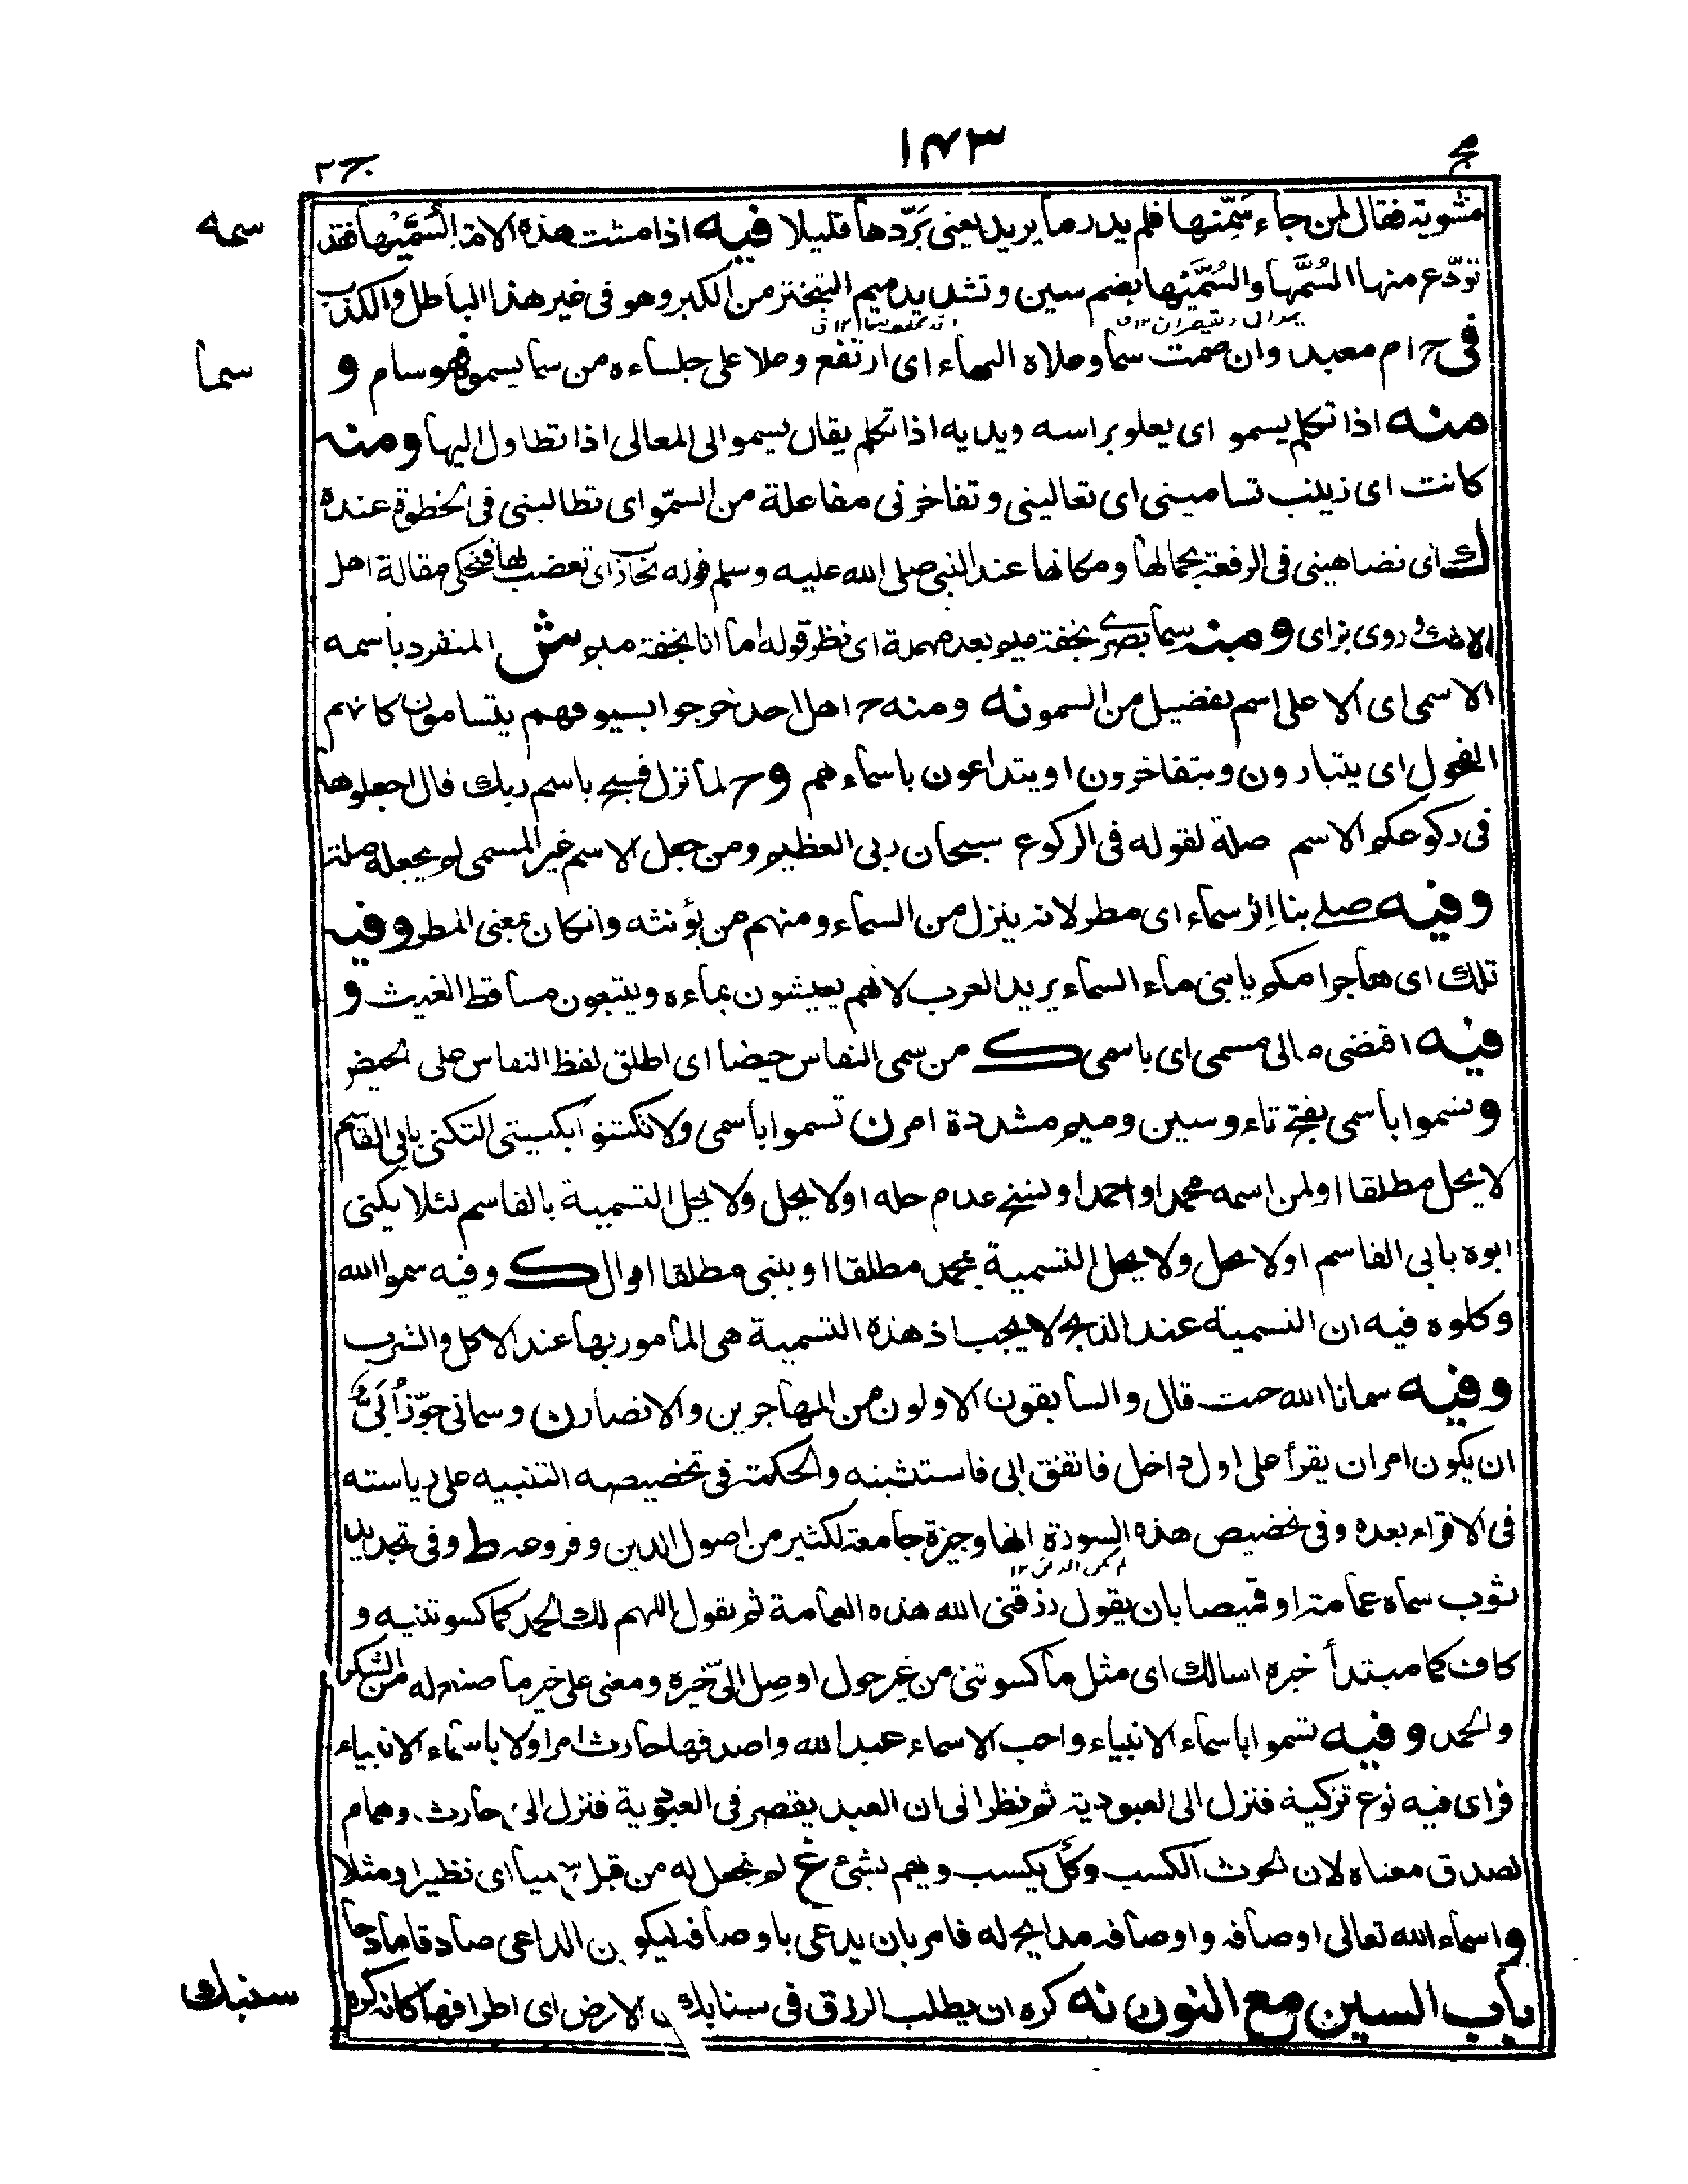 مج ١٤٣ ج٢
مشوية فقال لمن جاء سَمِّنها فلم يدر ما يريد يعنى بَرّدها قليلا فيه اذا مشت هذه الامة السُمَّيْها فقد سمه
تؤدّع منها السُمَّها والسُمَّيْها بضم سين وتشديد ميم التبختر من الكبر وهو فى غير هذا الباطل والكذب
فى ح ام معبد وان صمت سما وعلاه البهاء اى ارتفع وعلا على جلساءه من سما يسمو فهو سام و سما
منه اذا تكلم يسمو اى يعلو براسه ويديه اذا تكلم يقال يسمو الى المعالى اذا تطاول اليها ومنه
كانت اى زينب تسامينى اى تعالينى وتفاخرنى مفاعلة من السموّ اى تطالبنى فى الحظوة عنده
ك اى تضاهينى فى الرفعة بجمالها ومكانها عند النبى صلى الله عليه وسلم قوله تحارب اى تعضب لها فتحكى مقالة اهل
الافك وروى بزاى ومنه سما بصرى بخفة ميم بعد مهملة اى نظر قوله اما انا بخفة ميم ش المنفرد باسمه
الاسمى اى الاعلى اسم تفضيل من السمو نه ومنه ح اهل احد خرجوا بسيوفهم يتسامون كانهم
الفحول اى يتبارون ويتفاخرون او يتداعون باسماءهم وح لما نزل فسبح باسم ربك قال اجعلوها
فى ركوعكم الاسم صلة لقوله فى الركوع سبحان ربى العظيم ومن جعل الاسم غير المسمى لم يجعله صلة
وفيه صلى بنا اِثر سماء اى مطر لانه ينزل من السماء ومنهم من يؤنثه وانكان بمعنى المطر وفيه
تلك اى هاجر امكم يا بنى ماء السماء يريد العرب لانهم يعيشون بماءه ويتبعون مساقط الغيث و
فيه اقتضى مالى مسمى اى باسمى ك من سمى النفاس حيضا اى اطلق لفظ النفاس على الحيض
وتسموا باسمى بفتح تاء وسين وميم مشددة امر ن تسموا باسمى ولا تكتنوا بكنيتى التكنى بابى القاسم
لا يحل مطلقا او لمن اسمه محمد او احمد او نسخ عدم حله او لا يحل ولا يحل التسمية بالقاسم لئلا يكنى
ابوه بابى القاسم او لا يحل ولا يحل التسمية بمحمد مطلقا او بنبى مطلقا اقوال ك وفيه سموا الله
وكلوه فيه ان التسمية عند الذبح لا يجب اذ هذه التسمية هى المأمور بها عند الاكل والشرب
وفيه سمانا الله حيث قال والسابقون الاولون من المهاجرين والانصار ن وسمانى جوّز اُبَىُّ
ان يكون امر ان يقرأ على اول داخل فاتفق ابى فاستثبته والحكمة فى تخصيصه التنبيه على رياسته
فى الاقراء بعده وفى تخصيص هذه السورة انها وجيزة جامعة لكثير من اصول الدين وفروعه ط وفى تجديد
ثوب سماه عمامة او قميصا بان يقول رزقنى الله هذه العمامة ثم يقول اللهم لك الحمد كما كسوتنيه و
كاف كما مبتدأ خبره اسالك اى مثل ما كسوتنى من غير حول اوصِل الىّ خيره ومعنى على خير ما صنع له من الشكر
والحمد وفيه تسموا باسماء الانبياء واحب الاسماء عبد الله واصدقها حارث امر اولا باسماء الانبياء
فراى فيه نوع تزكية فنزل الى العبودية ثم نظر الى ان العبد يقصر فى العبودية فنزل الى حارث وهمام
لصدق معناه لان الحرث الكسب وكُل يكسب ويهم بشئ غ لم نجعل له من قبل سميا اى نظيرا ومثلا
واسماء الله تعالى اوصافه واوصافه مدايح له فامر بان يدعى باوصافه ليكون الداعى صادقا مادحا
باب السين مع النون نه كره ان يطلب الرزق فى سنابك الارض اى اطرافها كانه كره سنبك